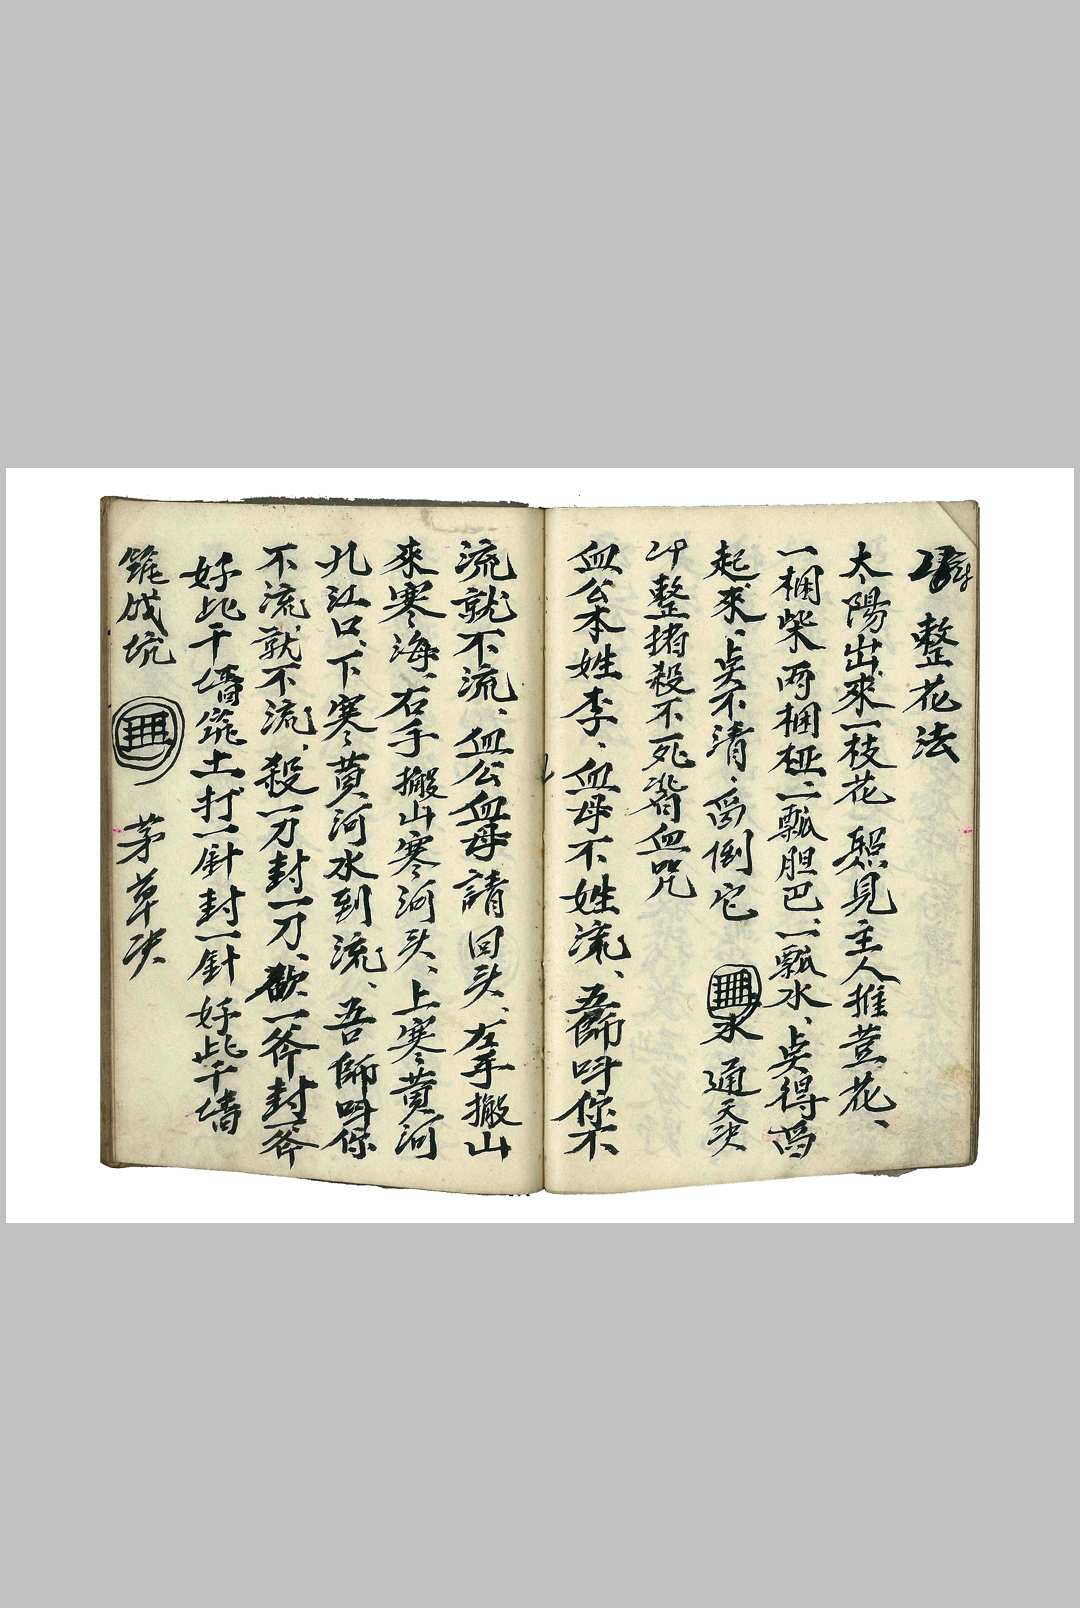 整花法
太陽出來一枝花 照見主人推荳花、
一梱柴两梱椏、一瓢胆巴、一瓢水、炁得
起來、炁不清、倒它 水 通天决
整猪殺不死背血咒
血公本姓李、血母不姓流、五師呌你不
流就不流、血公血母請回头、左手搬山
來寒海、右手搬山寒河头、上寒黄河
九江口、下寒黄河水到流、吾師呌你
不流就不流、殺一刀封一刀、一斧封一斧
好比干墻筑土打一針封一針好比干墻
筑成坑 茅草决